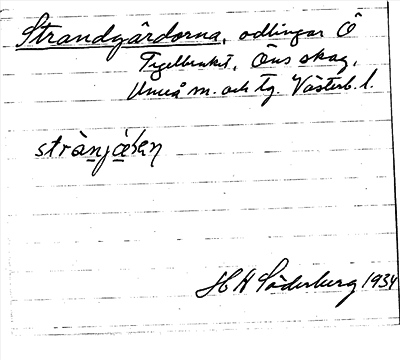 Strandgärdorna, odlingar Ö
Tegelbruket, Öns skog,
Umeå m. och tg. Västerb. l.
strànjæ̀ḷan
H H Söderberg 1934